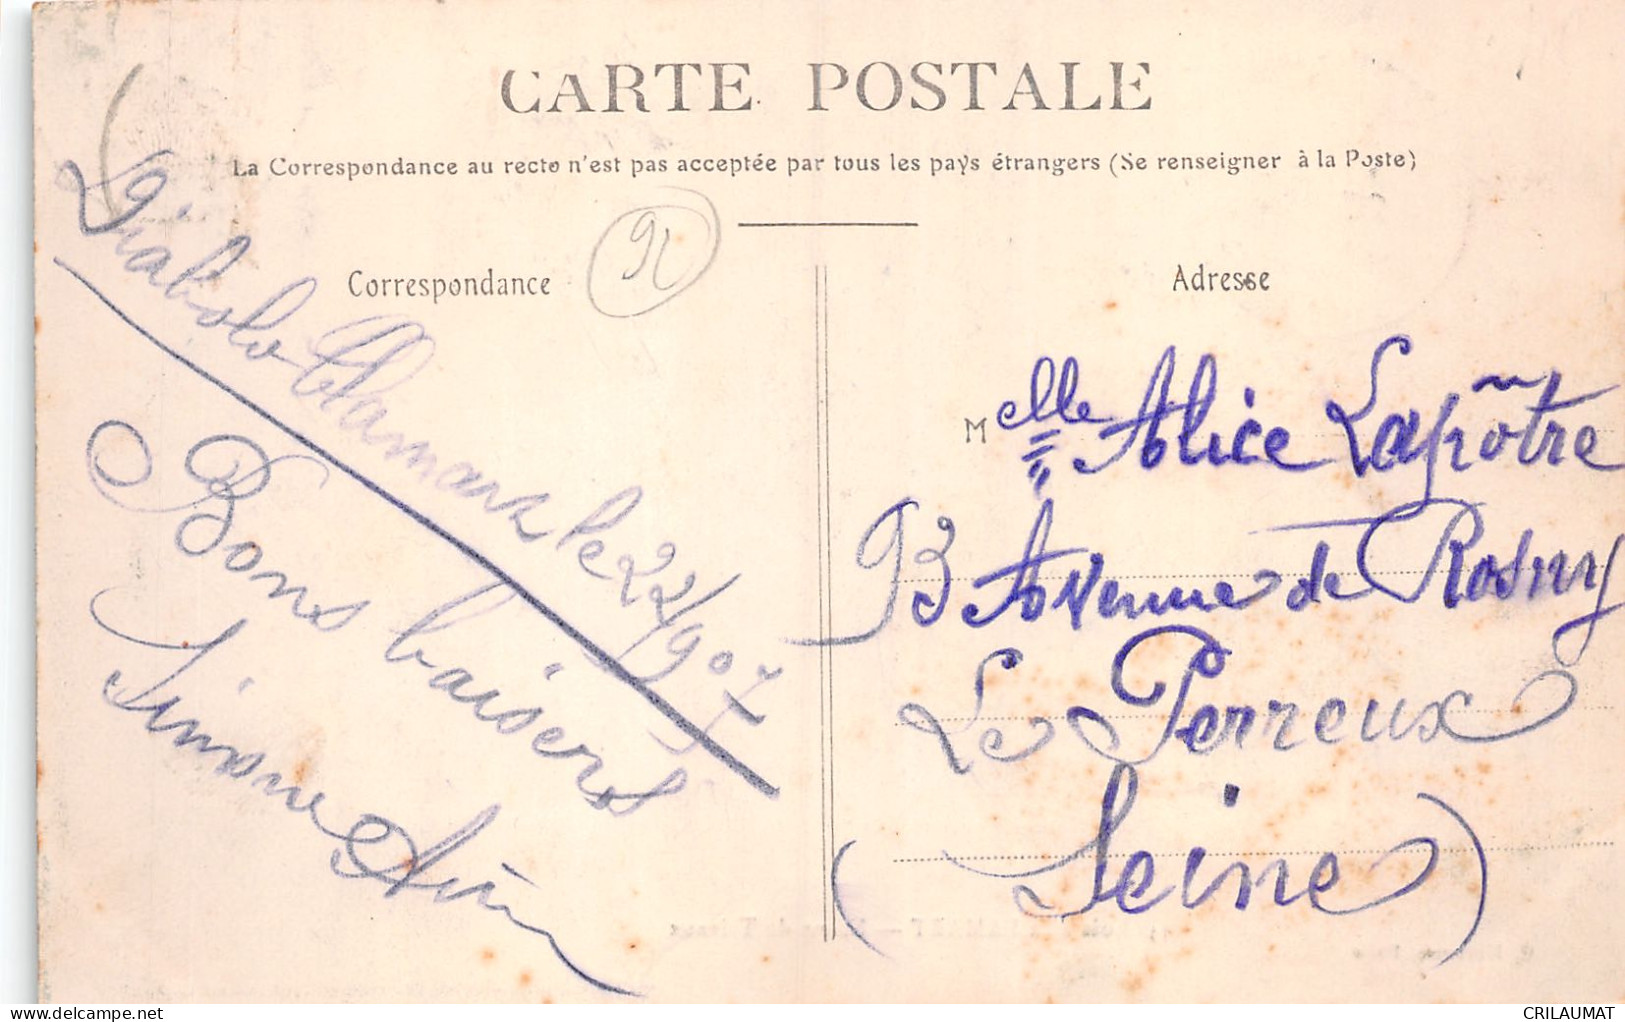 CARTE POSTALE
La Correspondance au recto n'est pas acceptée par tous les pays étrangers (Se renseigner à la Poste)
Correspondance
92
Diabolo Clamart le 22/9 07
Bons baisers
Simone
Adresse
Melle Alice Lapôtre
93 Avenue de Rosny
Le Perreux
(Seine)
delcampe.net
CRILAUMAT